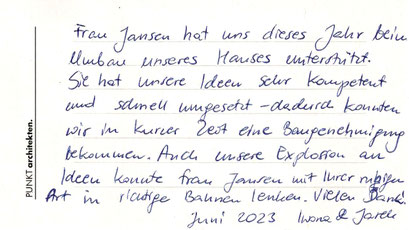 Frau Jansen hat uns dieses Jahr beim
Umbau unseres Hauses unterstützt.
Sie hat unsere Ideen sehr kompetent
und schnell umgesetzt – dadurch konnten
wir in kurzer Zeit eine Baugenehmigung
bekommen. Auch unsere Explosion an
Ideen konnte Frau Jansen mit Ihrer ruhigen
Art in richtige Bahnen lenken. Vielen Dank.
Juni 2023 Iwona & Jarek
PUNKT architekten.